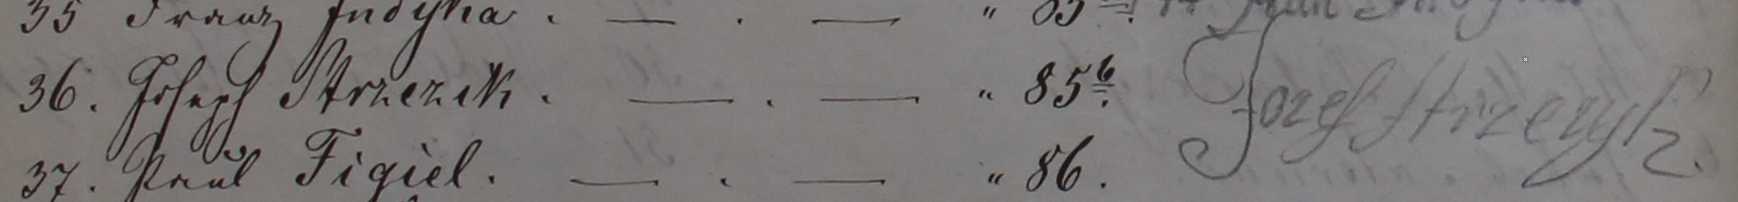 35 Franz Indyka . — . — " 85
36. Joseph Strzezik . — . — " 85b. Jozef Strzezyk
37. Paul Figiel. — . — " 86.